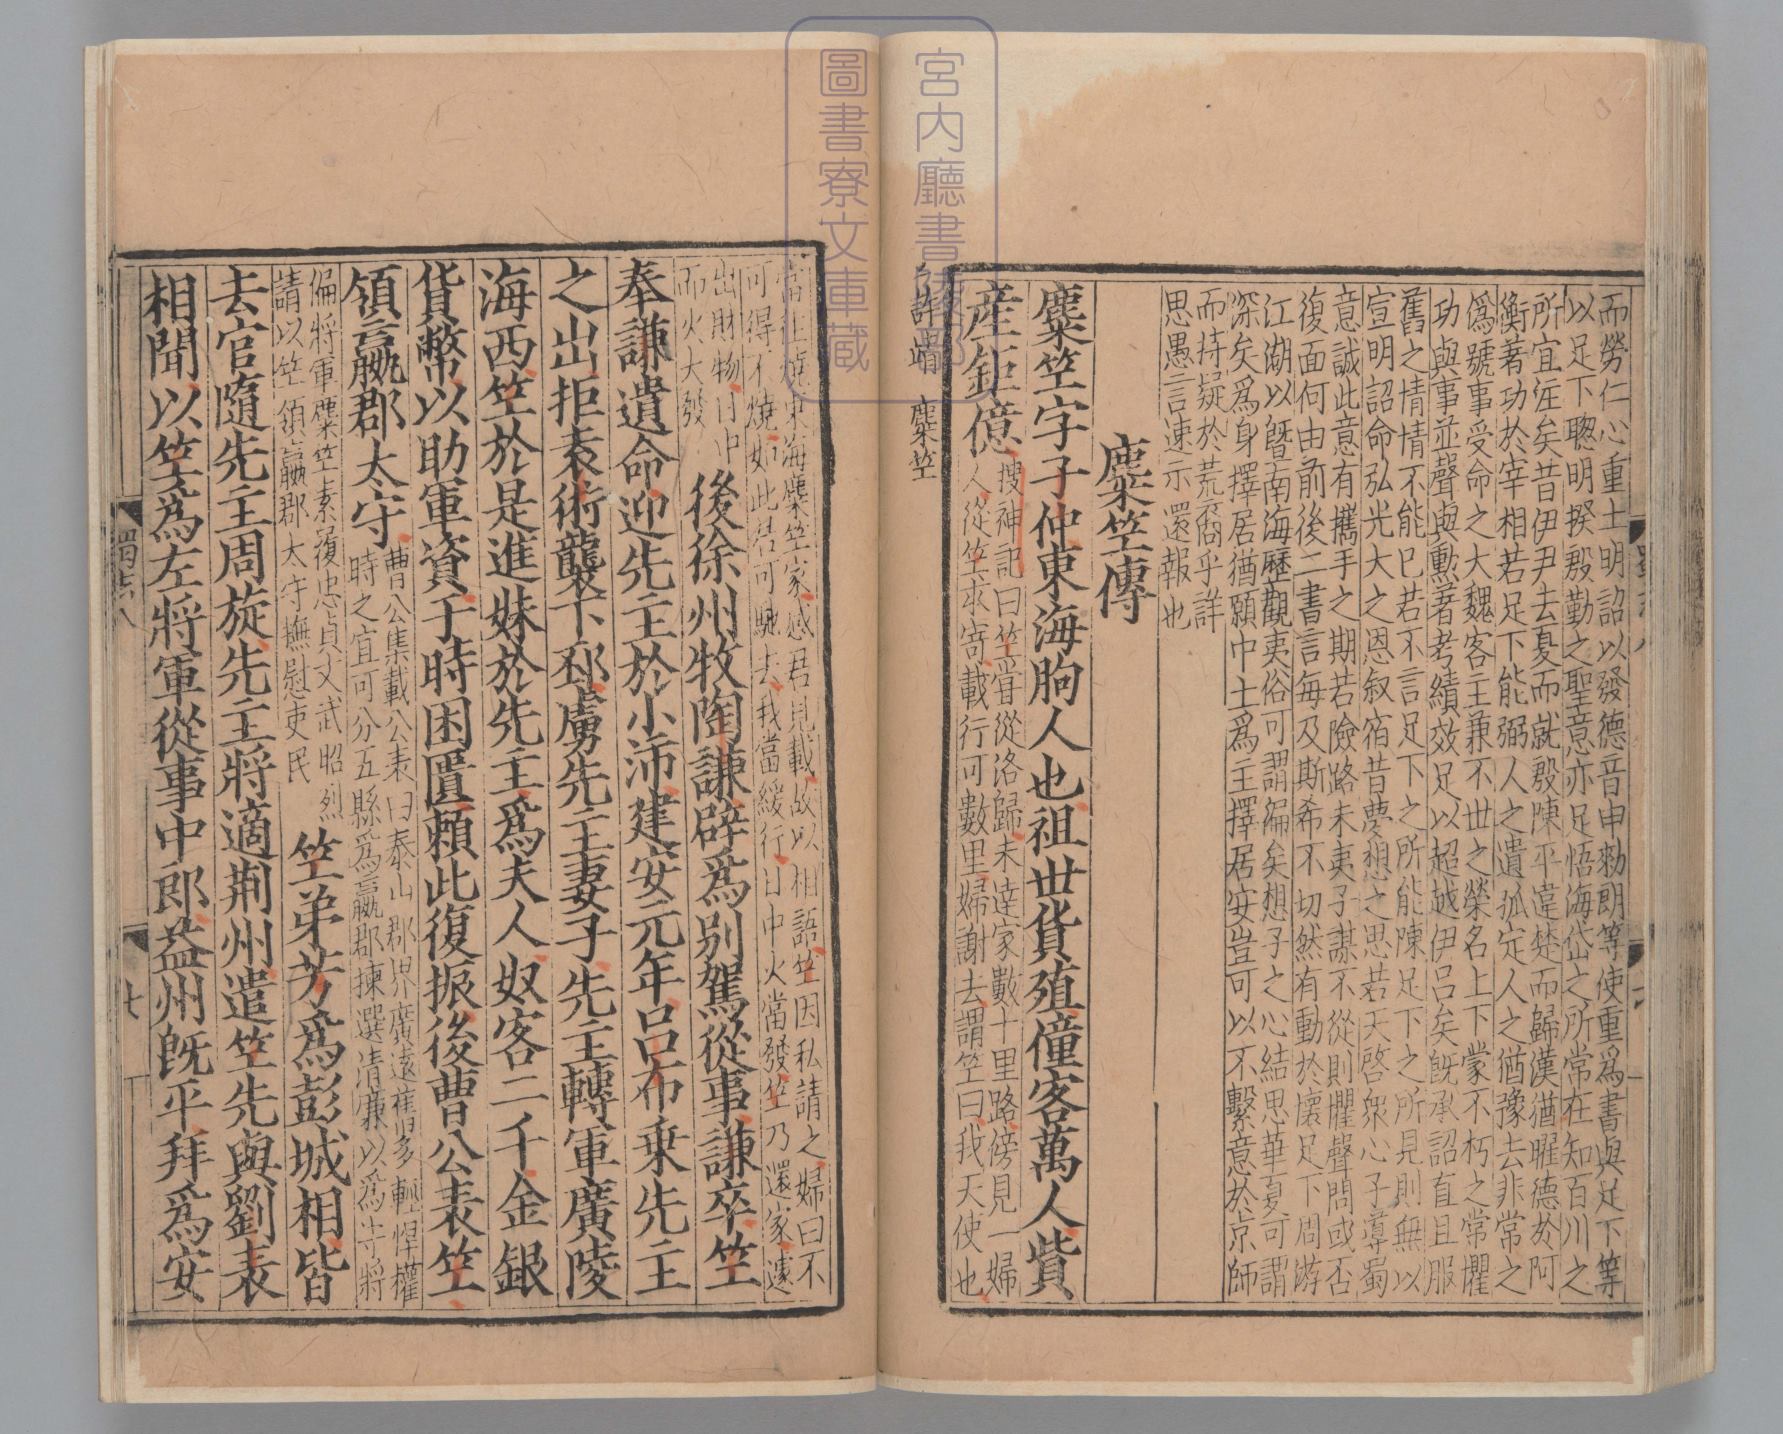 而勞仁心重土明詔以發德音申勑朗等使重爲書與足下等
以足下聦明揆殷勤之聖意亦足悟海岱之所常在知百川之
所宜注矣昔伊尹去夏而就殷陳平違楚而歸漢猶曜德於阿
衡著功於宰相若足下能弼人之遺孤定人之猶豫去非常之
僞號事受命之大魏客主兼不世之榮名上下蒙不朽之常耀
功與事並聲與勲著考績效足以超越伊呂矣旣承詔直且服
舊之情情不能已若不言足下之所能陳足下之所見則無以
宣明詔命弘光大之恩叙宿昔夢想之思若天啓衆心子導蜀
意誠此意有攜手之期若險路未夷子謀不從則懼聲問或否
復面何由前後二書言每及斯希不切然有動於懷足下周游
江湖以曁南海歷觀夷俗可謂徧矣想子之心結思華夏可謂
深矣爲身擇居猶願中土爲主擇居安豈可以不繫意於京師
而持疑於荒裔乎詳
思愚言速示還報也
麋竺傳
麋竺字子仲東海朐人也祖世貨殖僮客萬人貲
産鉅億
搜神記曰竺嘗從洛歸未達家數十里路傍見一婦
人從竺求寄載行可數里婦謝去謂竺曰我天使也
許靖 麋竺
宮内廳書陵部
圖書寮文庫蔵
當往燒東海麋竺家感君見載故以相語竺因私請之婦曰不
可得不燒如此君可馳去我當緩行日中火當發竺乃還家遽
出財物日中
而火大發
後徐州牧陶謙辟爲別駕從事謙卒竺
奉謙遺命迎先主於小沛建安元年呂布乗先主
之出拒袁術襲下邳虜先主妻子先主轉軍廣陵
海西竺於是進妹於先主爲夫人奴客二千金銀
貨幣以助軍資于時困匱賴此復振後曹公表竺
領嬴郡太守
曹公集載公表曰泰山郡界廣遠舊多輕悍權
時之宜可分五縣爲嬴郡揀選清廉以爲守將
偏將軍麋竺素履忠貞文武昭烈
請以竺領嬴郡太守撫慰吏民
竺弟芳爲彭城相皆
去官隨先主周旋先主將適荆州遣竺先與劉表
相聞以竺爲左將軍從事中郎益州旣平拜爲安
蜀志八